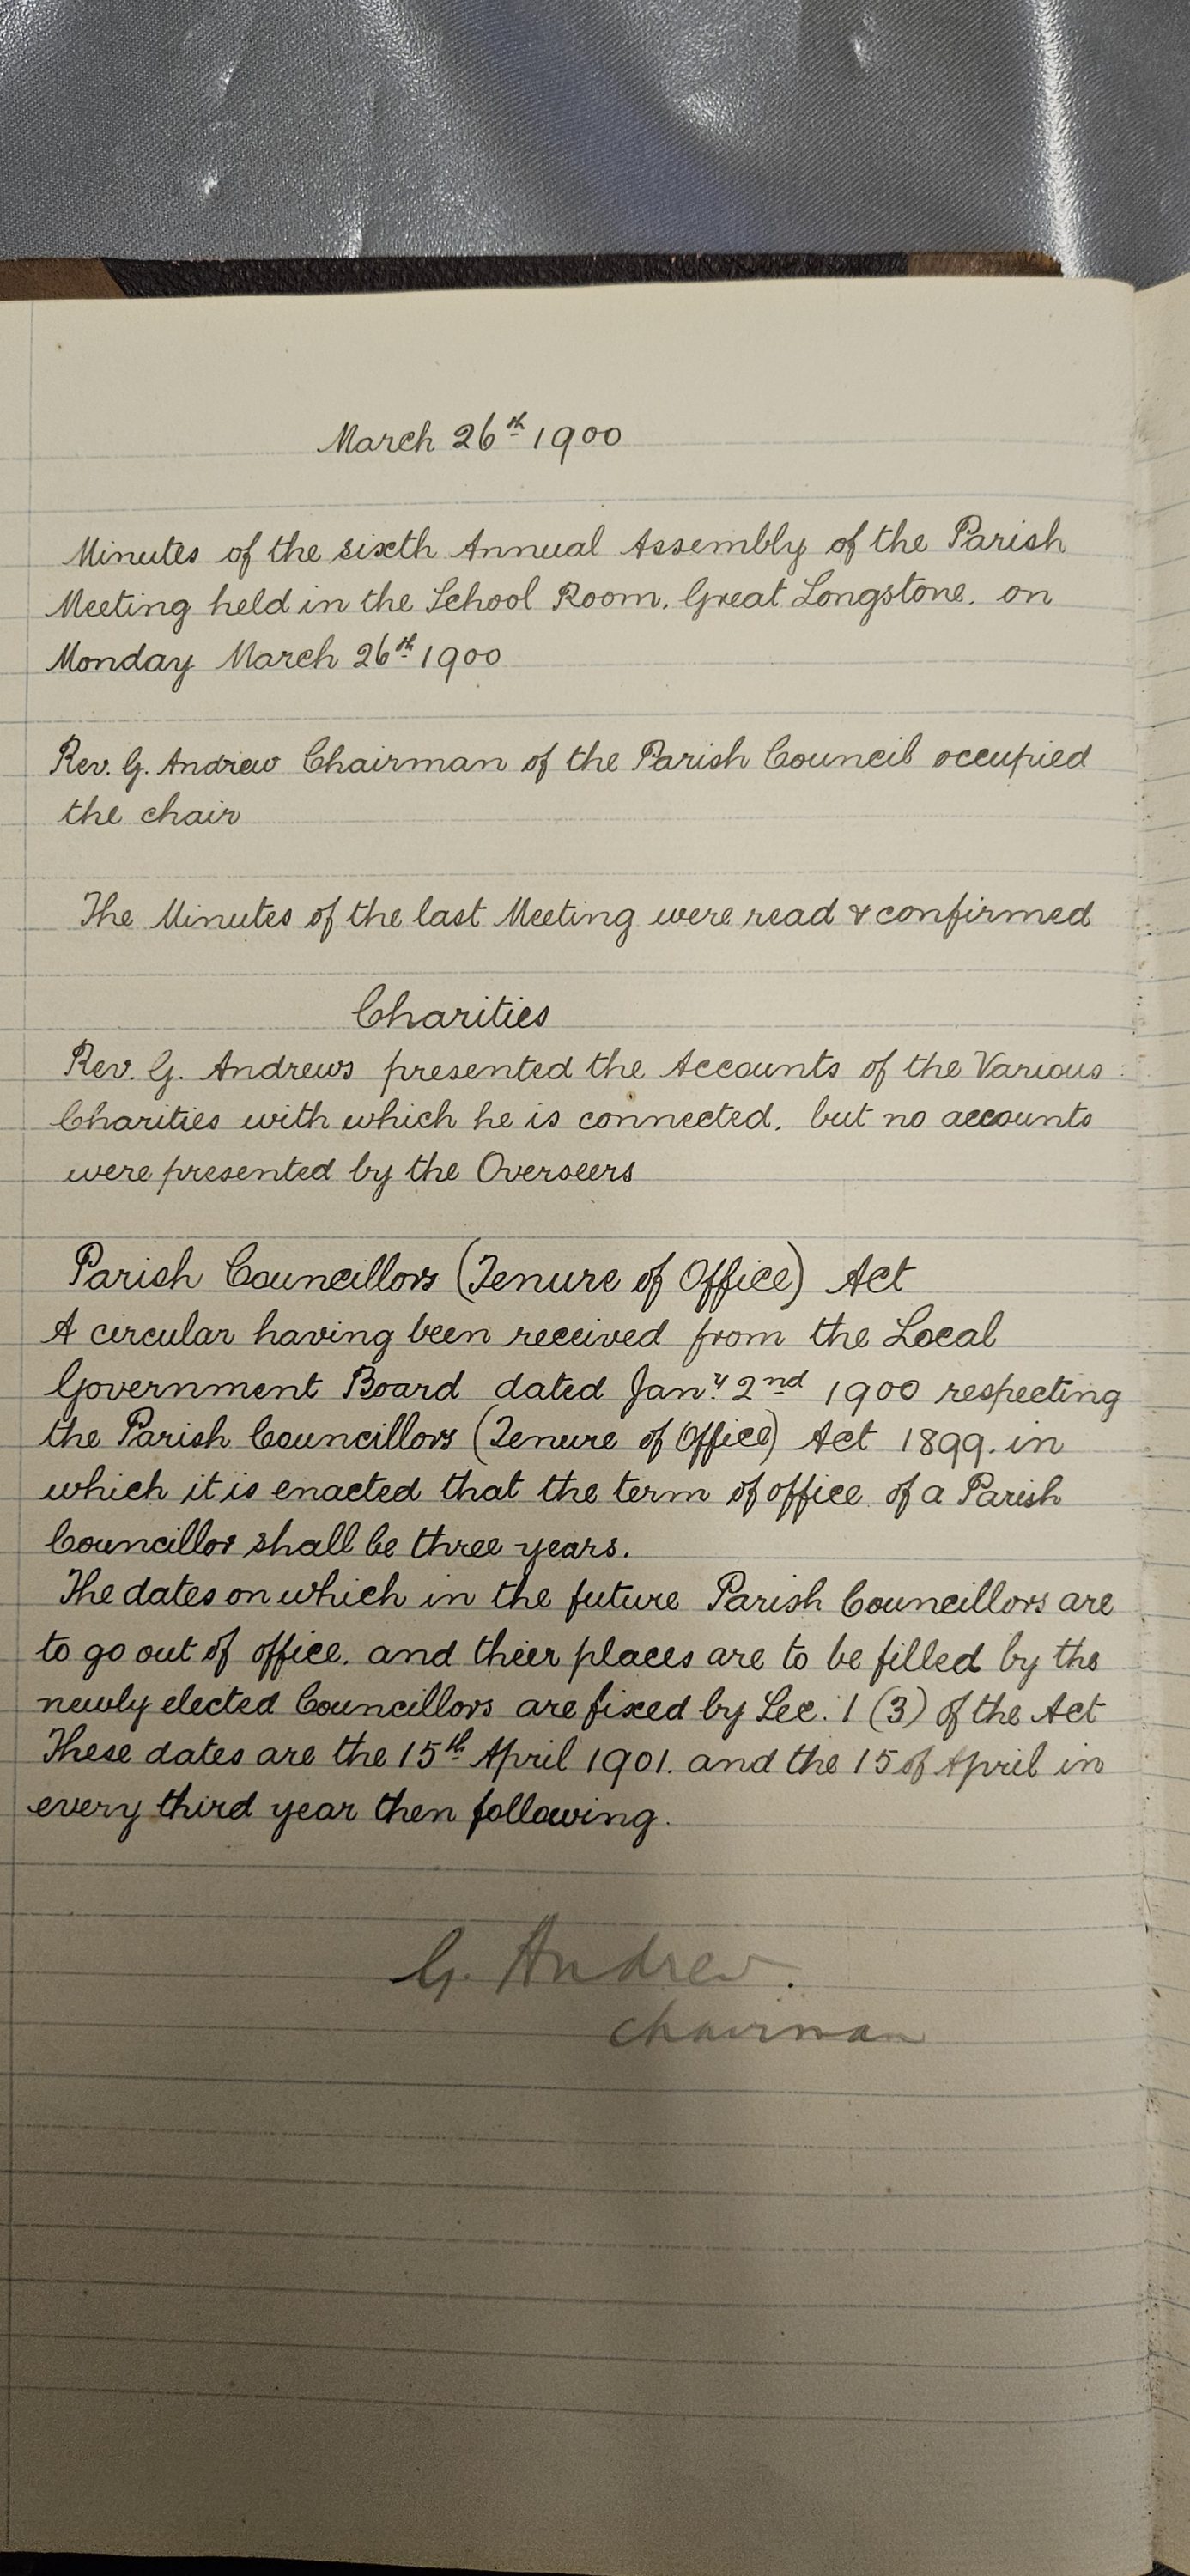 March 26th 1900
Minutes of the sixth Annual Assembly of the Parish
Meeting held in the School Room. Great Longstone. on
Monday March 26th 1900
Rev. G. Andrew Chairman of the Parish Council occupied
the chair
The Minutes of the last Meeting were read & confirmed
Charities
Rev. G. Andrews presented the Accounts of the Various
Charities with which he is connected. but no accounts
were presented by the Overseers
Parish Councillors (Tenure of Office) Act
A circular having been received from the Local
Government Board dated Jany. 2nd 1900 respecting
the Parish Councillors (Tenure of Office) Act 1899. in
which it is enacted that the term of office of a Parish
Councillor shall be three years.
The dates on which in the future Parish Councillors are
to go out of office. and their places are to be filled by the
newly elected Councillors are fixed by Sec. 1 (3) of the Act
These dates are the 15th April 1901. and the 15 of April in
every third year then following.
G. Andrew.
Chairman